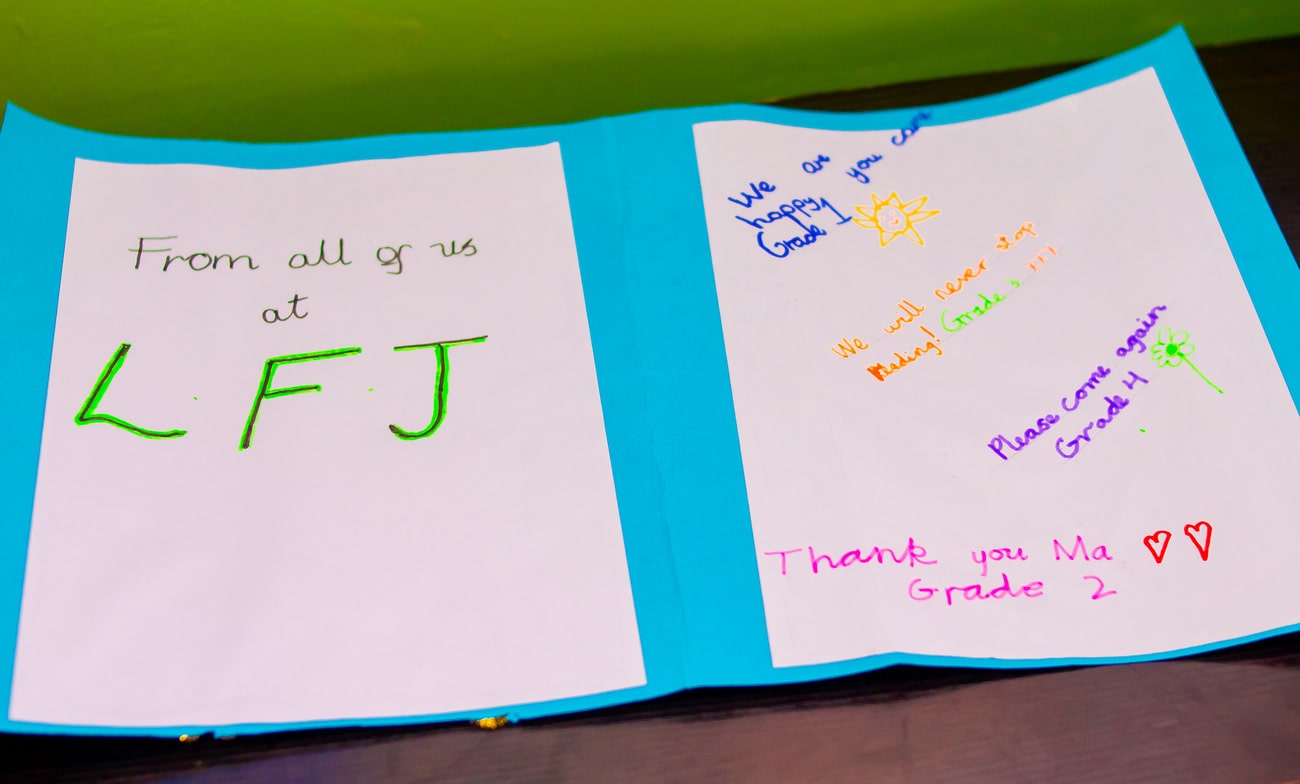 From all of us
at
L. F. J
We are happy you came
Grade 1
We will never stop
Reading! Grade 3
Please come again
Grade 4
Thank you Ma
Grade 2